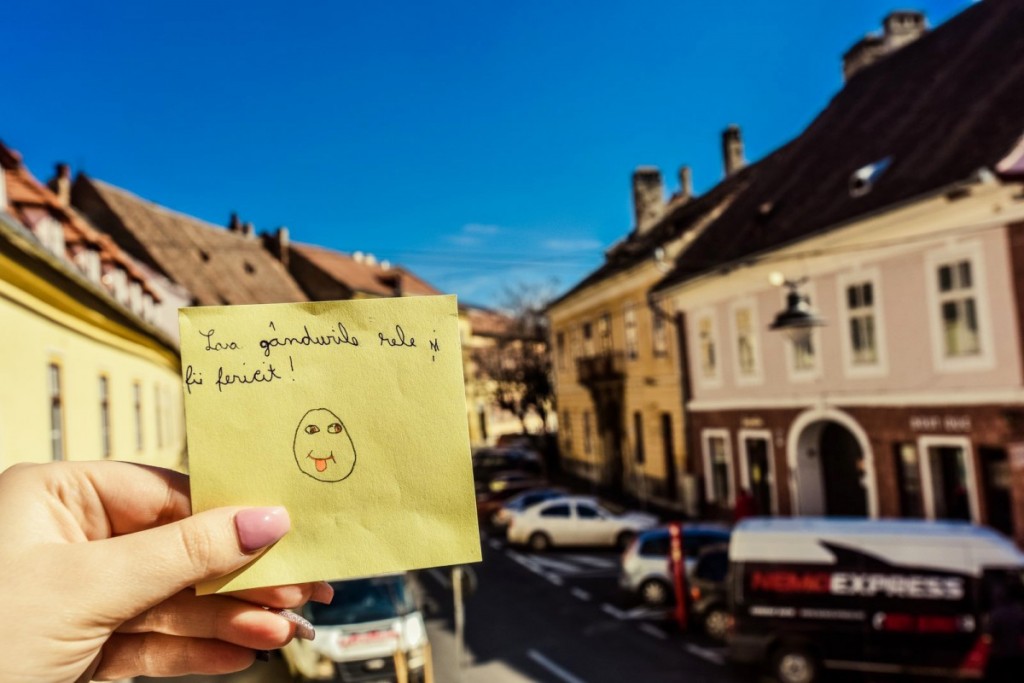 Lasa gândurile rele și
fii fericit!
NEMOEXPRESS